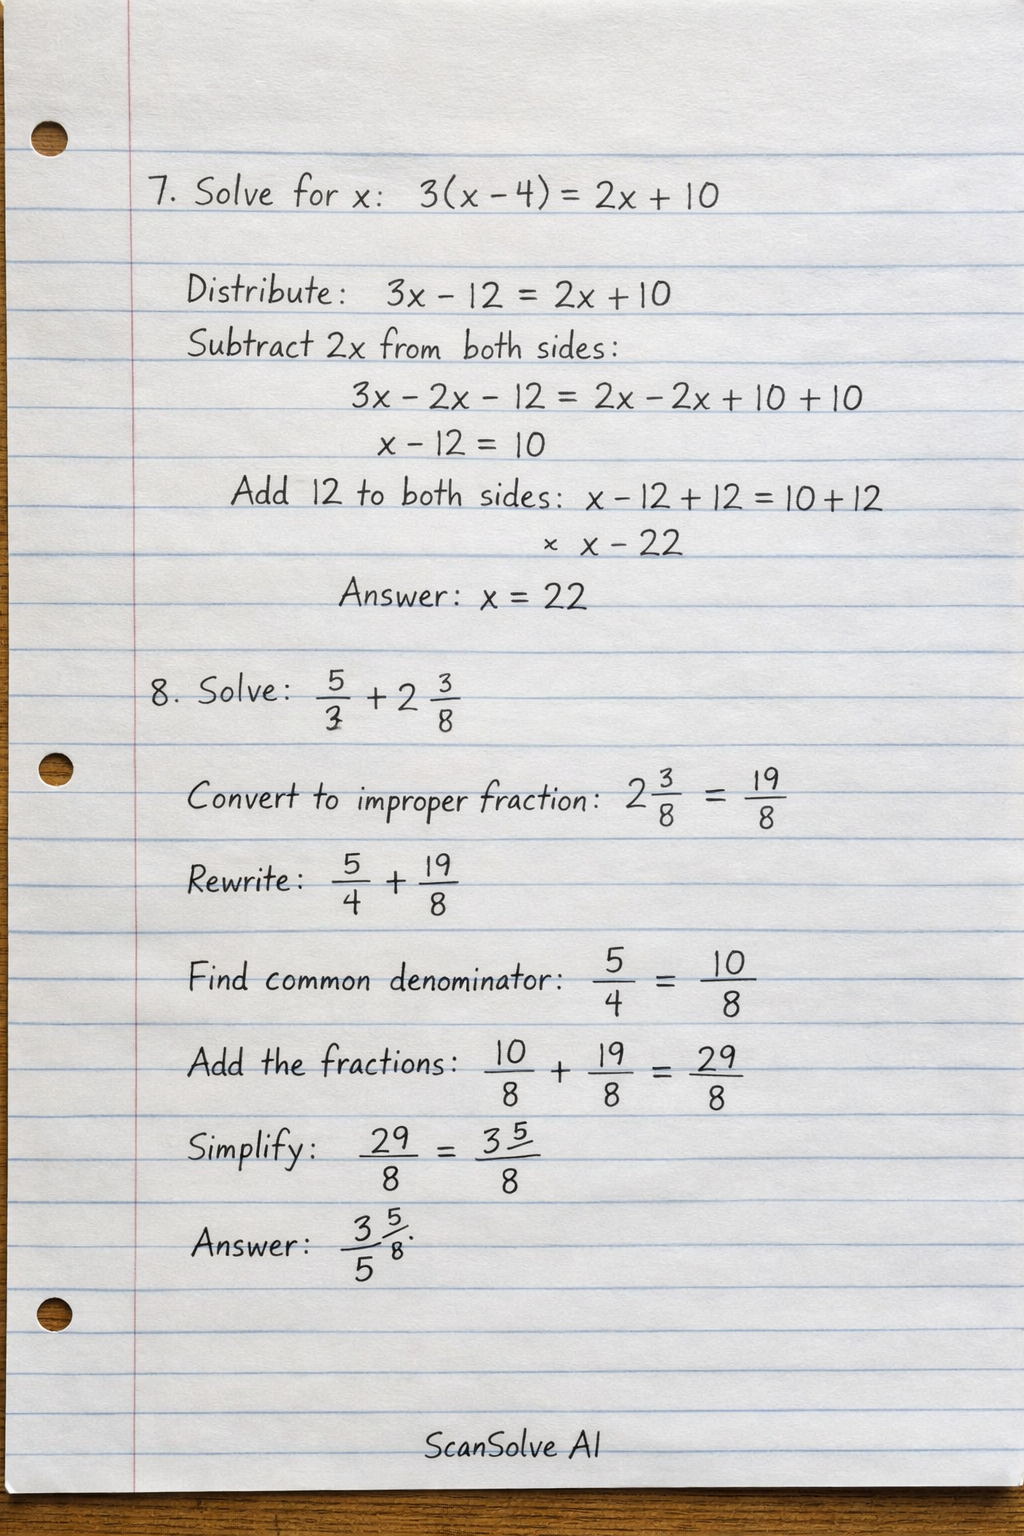 7. Solve for x: 3(x - 4) = 2x + 10
Distribute: 3x - 12 = 2x + 10
Subtract 2x from both sides:
3x - 2x - 12 = 2x - 2x + 10 + 10
x - 12 = 10
Add 12 to both sides: x - 12 + 12 = 10 + 12
× x - 22
Answer: x = 22
8. Solve: 5/3 + 2 3/8
Convert to improper fraction: 2 3/8 = 19/8
Rewrite: 5/4 + 19/8
Find common denominator: 5/4 = 10/8
Add the fractions: 10/8 + 19/8 = 29/8
Simplify: 29/8 = 3 5/8
Answer: 3/5 5/8.
ScanSolve AI